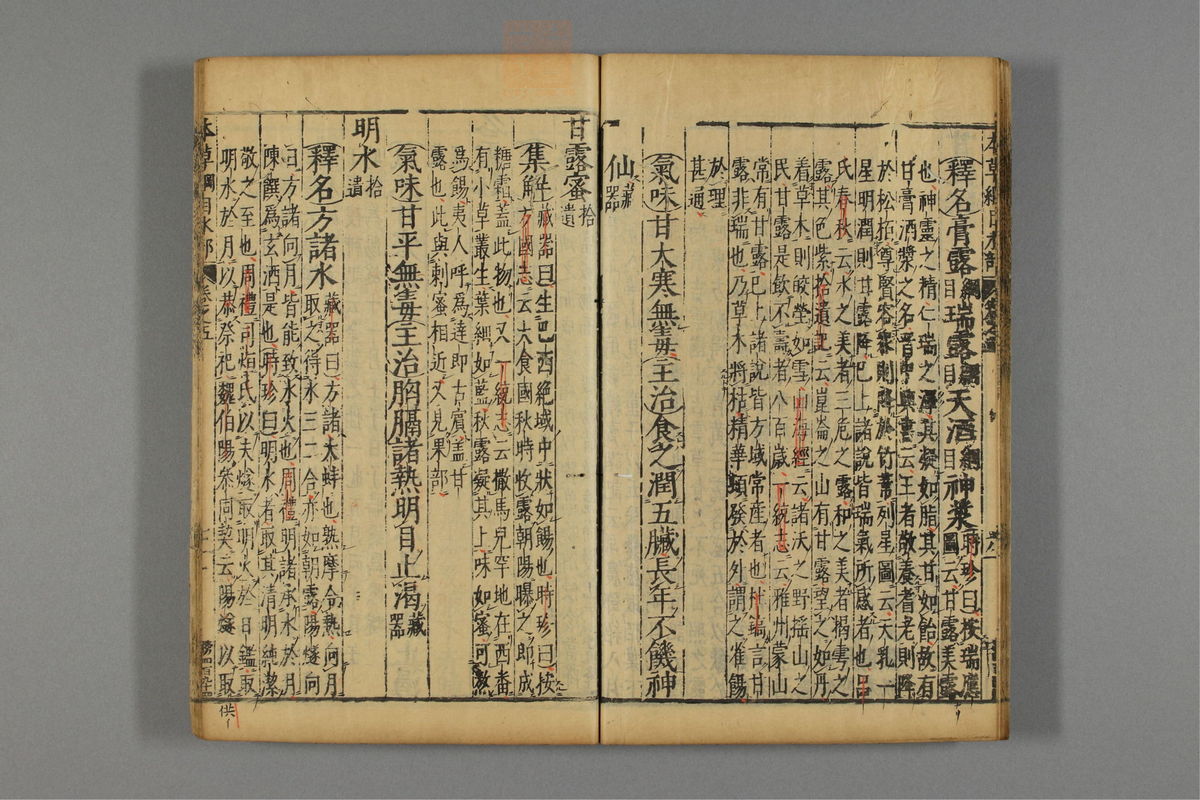 本草綱目水部
釋名膏露綱目瑞露綱目天酒綱目神漿時珍曰按瑞應圖云甘露美露
也神靈之精仁瑞之澤其凝如脂其甘如飴故有
甘膏酒漿之名晉中興書云王者敬養耆老則降
於松柏尊賢容衆則降於竹葦列星圖云天乳一
星明潤則甘露降巳上諸說皆瑞氣所感者也呂
氏春秋云水之美者三危之露和之美者揭雩之
露其色紫拾遺記云崑崙之山有甘露望之如丹
着草木則皎瑩如雪山海經云諸沃之野搖山之
民甘露是飲不壽者八百歲一統志云雅州蒙山
常有甘露巳上諸說皆方域常産者也杜鎬言甘
露非瑞也乃草木將枯精華頓發於外謂之雀餳
於理
甚通
氣味甘大寒無毒主治食之潤五臟長年不饑神
仙藏器
甘露蜜拾遺
集解藏器曰生巴西絶域中狀如餳也時珍曰按
方國志云大食國秋時收露朝陽曝之即成
糖霜蓋此物也又一統志云撒馬兒罕地在西番
有小草叢生葉細如藍秋露凝其上味如蜜可熬
爲餳夷人呼爲達即古賓蓋甘
露也此與刺蜜相近又見果部
氣味甘平無毒主治胸膈諸熱明目止渴藏器
明水拾遺
釋名方諸水藏器曰方諸大蚌也熟摩令熱向月
取之得水三二合亦如朝露陽燧向
日方諸向月皆能致水火也周禮明諸承水於月
陳饌爲玄酒是也時珍曰明水者取其清明純潔
敬之至也周禮司烜氏以夫燧取明火於日鑑取
明水於月以恭祭祀魏伯陽參同契云陽燧以取
本草綱目水部
卷之五
供